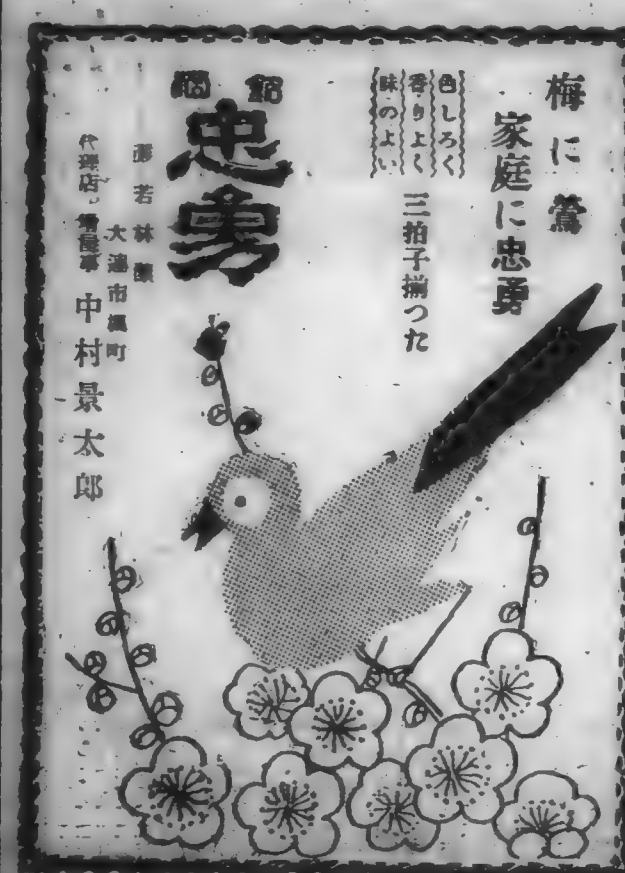 梅に鶯
家庭に忠勇
色しろく
香りよく
味のよい
三拍子揃つた
忠勇
若林
大連市
町
代理店
中村景太郎